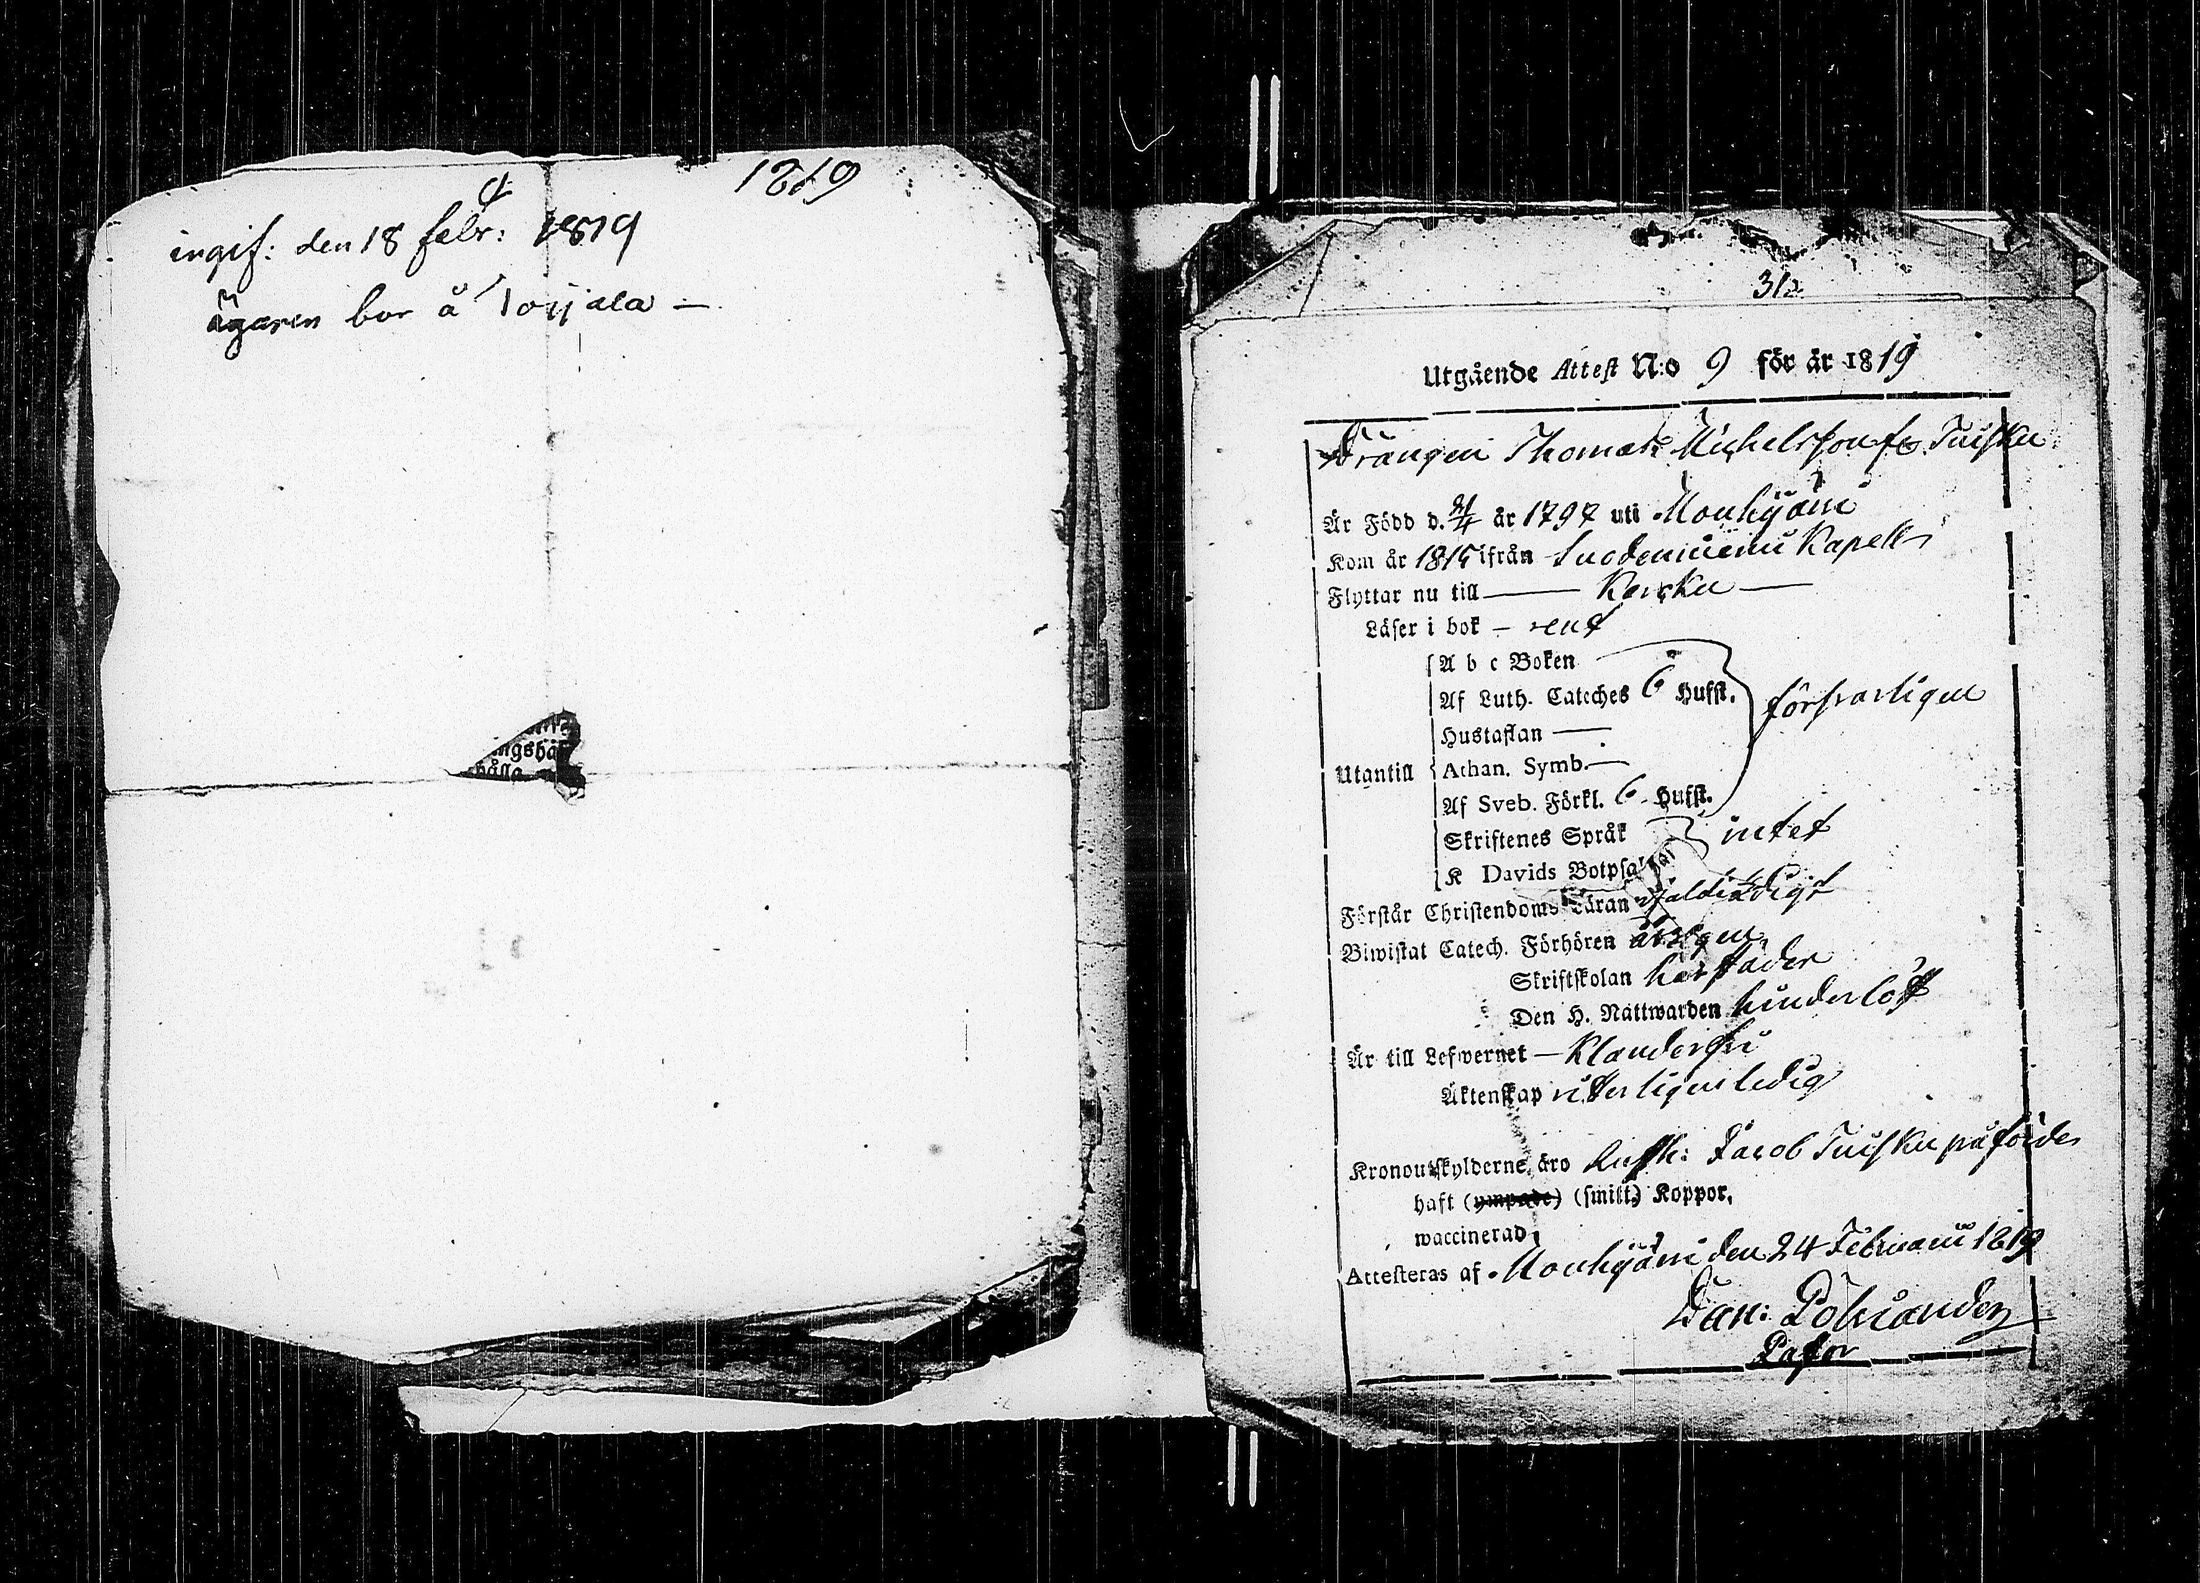 1819
ingif: den 18 febr: 1819
ägaren bor å Torjala —
ngshä
hålla
312
Utgående Attest N:o 9 för år 1819
Drängen Thomas Michelsson fr. Tuisku
Är Född d. år 1797 uti Mouhijärvi
Kom år 1815 ifrån Suodeniemi Kapell
Flyttar nu till — Karcku —
Läser i bok — rent
A b c Boken
Af Luth. Cateches 6 Hufst. försvarligen
Hustaflan —
Utantill Athan. Symb. —
Af Sveb. Förkl. 6 Hufst.
Skriftenes Språk intet
K Davids Botpsalmar
Förstår Christendoms Läran
Biwistat Catech. Förhören årligen
Skriftskolan härstädes
Den H. Nattwarden hinderlöst
Är till Lefwernet — Klanderfri
Äktenskap witterligen ledig
Kronoutskylderne äro Rusth: Jacob Tuisku påförde
haft (ympade) (smitt.) Koppor,
waccinerad,
Attesteras af Mouhijärvi den 24 Februarii 1819
Dan: Polviander
Pastor